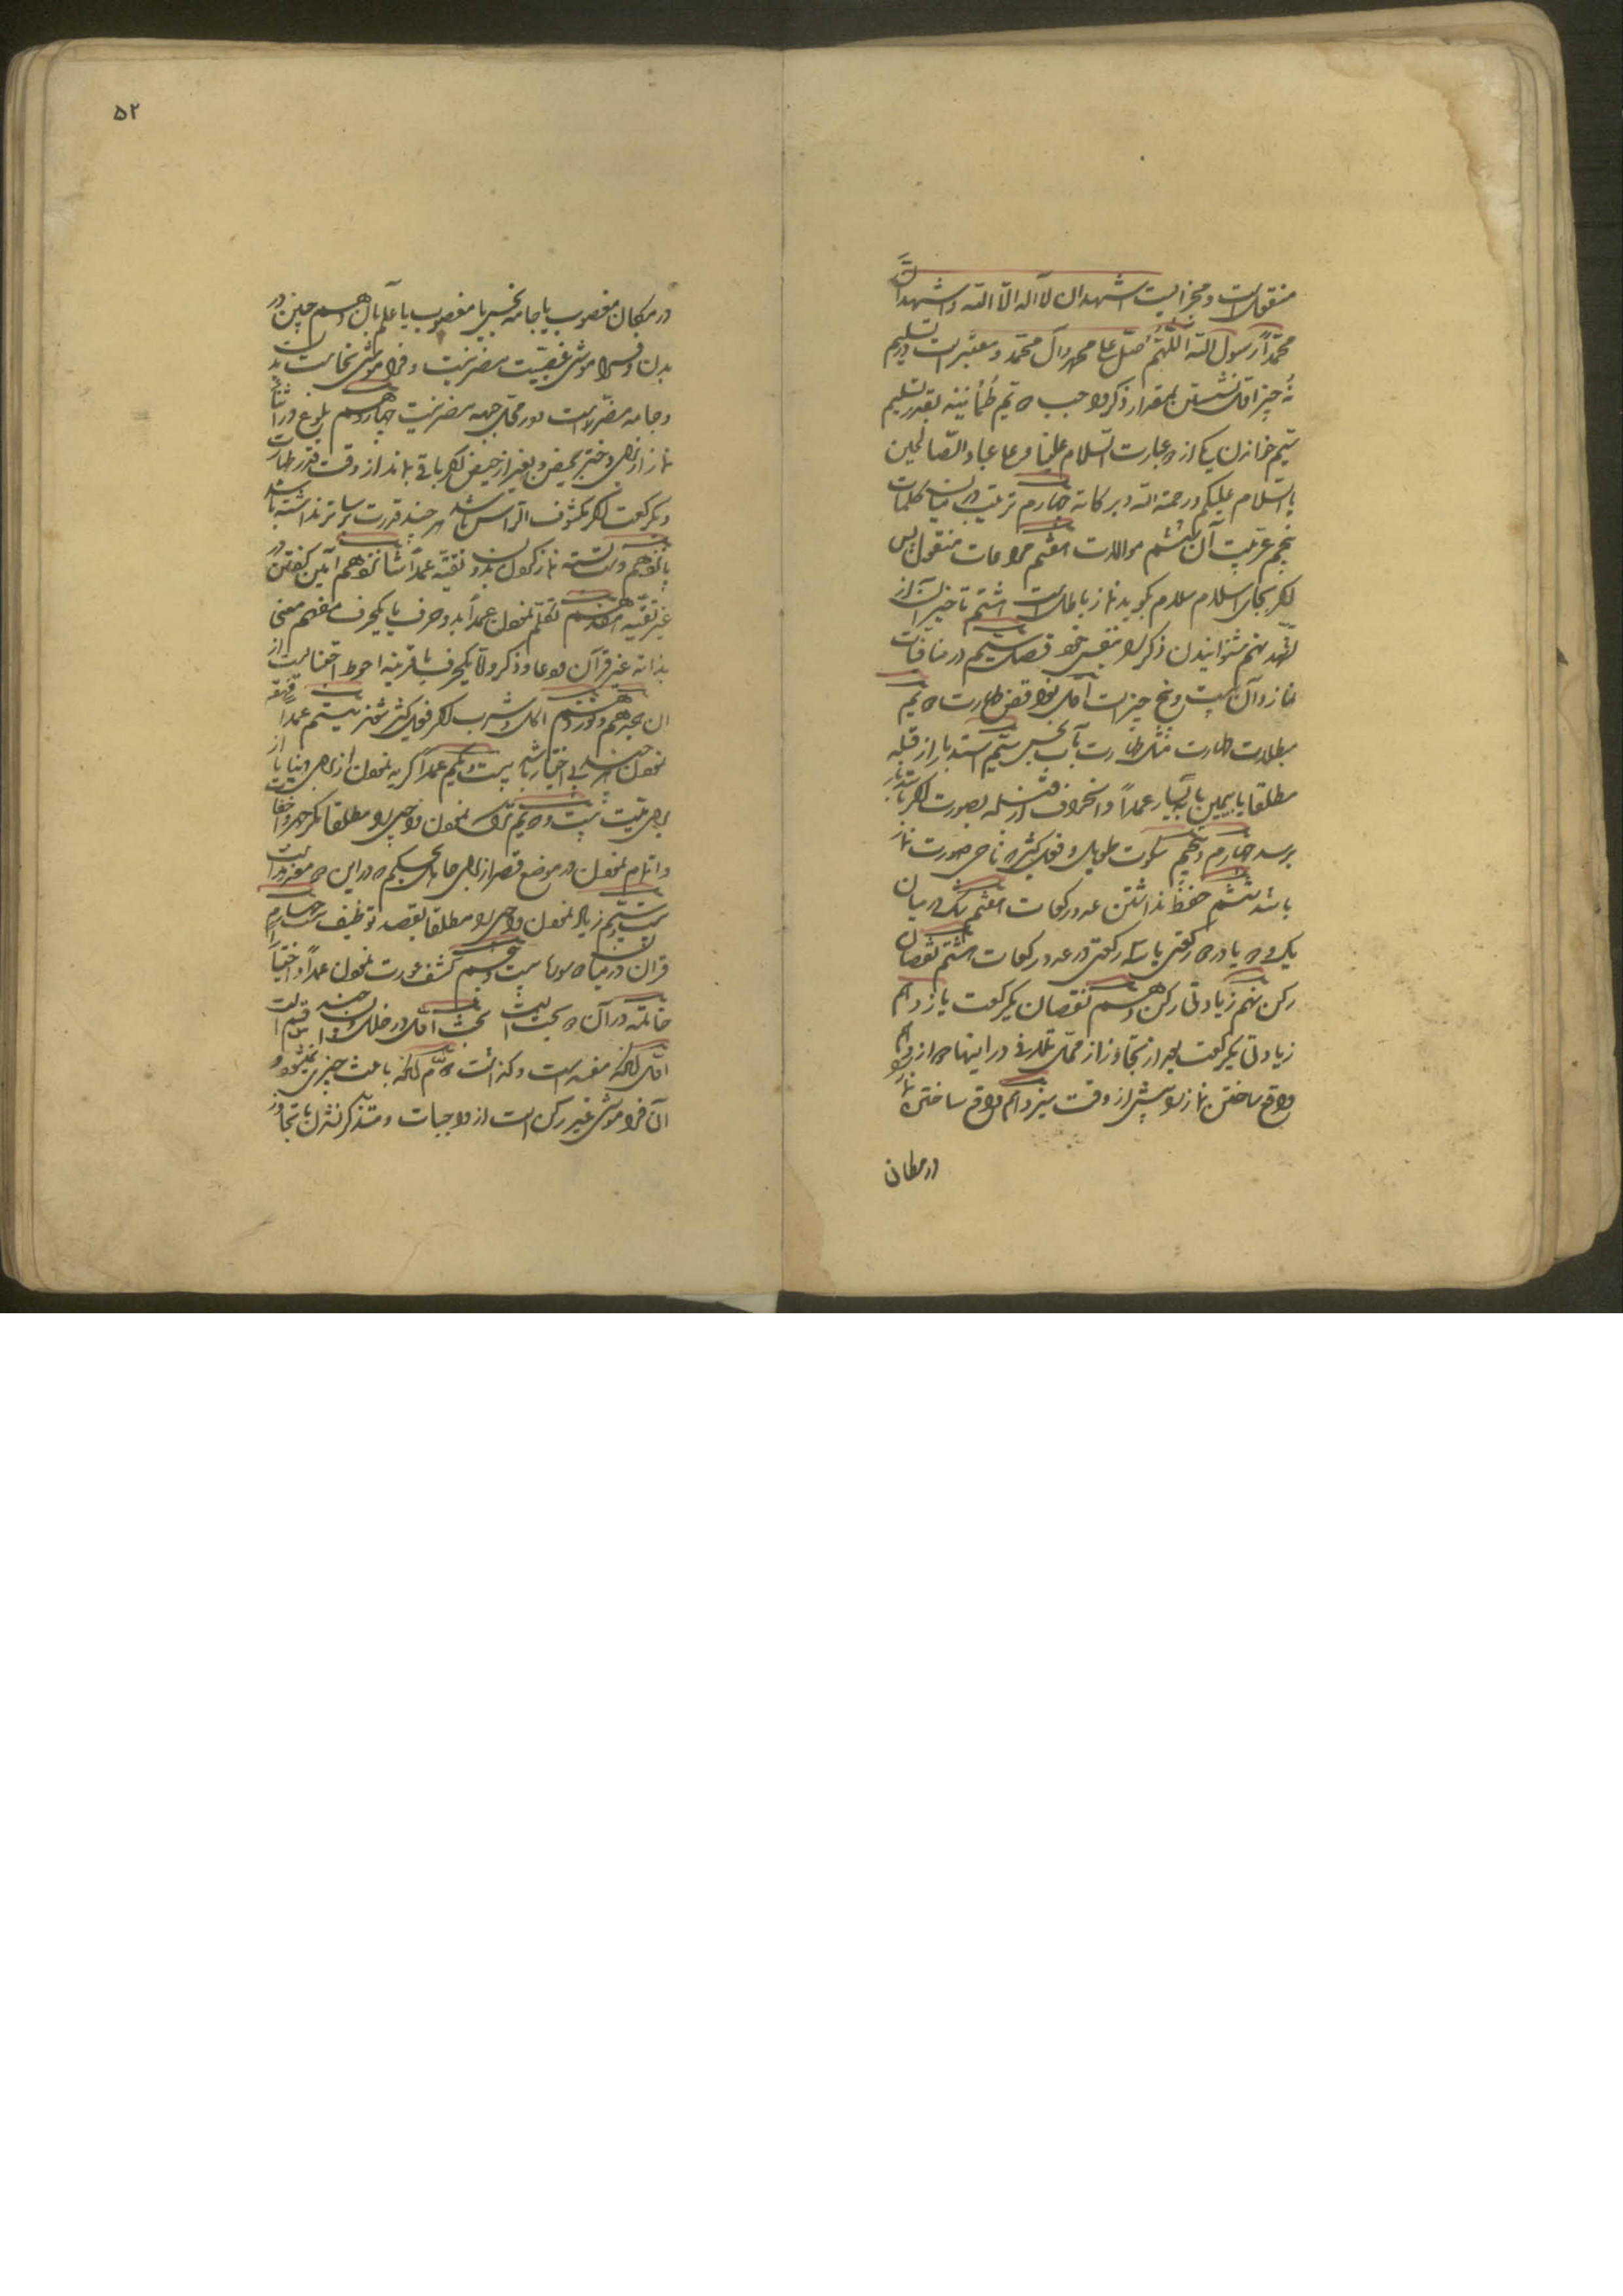 منقولست و مجزیست اشهد ان لا اله الا الله و اشهد ان
محمّداً رسول الله اللّهمّ صلّ علی محمد وآل محمّد و معتبر است در تسلیم
نُه چیز اوّل نشستن بمقدار ذکر واجب دویّم طُمأنینه بقدر تسلیم
سیّم خواندن یکی از دو عبارت السّلام علینا و علی عباد الله الصّالحین
یا السّلام علیکم و رحمة الله و برکاته چهارم ترتیب در میان کلمات
پنجم عربیّت آن ششم موالات هفتم مراعات منقول پس
اگر بجای السلام سلام بگوید نماز باطلست هشتم تاخیر آن از
تشهّد نهم شنوانیدن ذکر را بنفس خود فصل سیّم در منافیات
نماز و آن بیست و پنج چیز است اوّل نواقض طهارت دویّم
مبطلات طهارت مثل طهارت بآب نجس سیّم استدبار از قبله
مطلقا یا بیمین یا بیسار عمداً و انحراف از قبله بصورت اگر باستدبار
برسد چهارم و پنجم سکوت طویل و فعل کثیر که ماحی صورت نماز
باشد ششم حفظ نداشتن عدد رکعات هفتم شک در میان
یک و دو یا در دو رکعتی یا سه رکعتی در عدد رکعات هشتم نقصان
رکن نهم زیادتی رکن دهم نقصان یکرکعت یازدهم
زیادتی یکرکعت بعد از تجاوز از محلّ تلافی در اینها دوازدهم
واقع ساختن نماز را پیش از وقت سیزدهم واقع ساختن نماز
در مکان
۵۲
در مکان مغصوب یا جامه نجس یا مغصوب با علم بآن و هم چنین در
بدن و فراموشی غصبیّت مضر نیست و فراموشی نجاست بدن
و جامه مضرّ است و در محلّ جبهه مضر نیست چهاردهم بلوغ در اثنای
نماز از برای دختر بحیض و بغیر از حیض اگر باقی ماند از وقت قدر طهارت
و یکرکعت اگر مکشوف الرأس باشد هر چند قدرت بر ساتر نداشته باشد
پانزدهم دست بسته نماز کردن بدون تقیّه عمداً شانزدهم آمین گفتن در
غیر تقیّه هفدهم تکلّم نمودن عمداً بدو حرف یا یکحرف مفهم معنی
بذاته غیر قرآن و دعا و ذکر والّا یکحرف با قرینه احوط اجتنابست از
آن هجدهم و نوزدهم اکل و شرب اگر فعل کثیر شوند بیستم عمداً قهقهه
نمودن هر چند بی اختیار باشد بیست و یکم عمداً گریه نمودن از برای دنیا یا از
برای میّت بیست و دویّم ترک نمودن واجبی را مطلقا مگر جهر و اخفات
و اتمام نمودن در موضع قصر از برای جاهل بحکم که در این دو معذور است
بیست و سیّم زیاد نمودن واجبی را مطلقا بقصد توظیف بیست و چهارم
قران در میان دو سوره بیست و پنجم کشف عورت نمودن عمداً و اختیاراً
خاتمه در آن دو بحث است بحث اوّل در خلل و آن بر چند قسم است
اوّل آنکه مفسد است و گذشت دویّم آنکه باعث چیزی نمیشود و
آن فراموشی غیر رکن است از واجبات و متذکر نشدن تا تجاوز